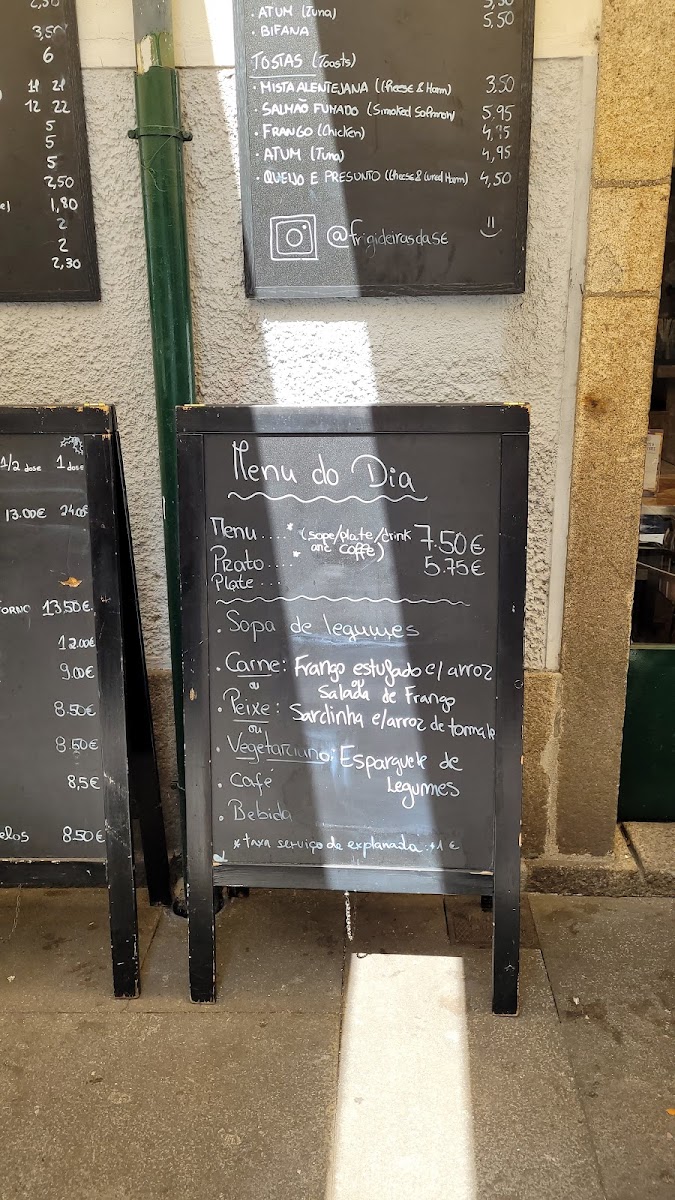 2,50
3,50
6
11 21
12 22
5
5
5
2,50
1,80
2
2
2,30
· ATUM (Tuna)
5,50
5,50
· BIFANA
TOSTAS (Toosts)
· MISTA ALENTEJANA (Cheese & Ham) 3,50
· SALMÃO FUMADO (Smoked Salmon) 5,95
· FRANGO (Chicken) 4,95
· ATUM (Tuna) 4,95
· QUEIJO E PRESUNTO (Cheese & Cured Ham) 4,50
@frigideirasdase
1/2 dose 1 dose
13.00€ 24.00€
FORNO 13.50€
12.00€
9.00€
8.50€
8.50€
8,5€
elos 8.50€
Menu do Dia
Menu ....* (sope/plate/drink 7.50€
and coffe)
Prato ....* 5.75€
Plate ....
· Sopa de legumes
· Carne: Frango estufado c/ arroz
ou
ou Salada de Frango
· Peixe: Sardinha c/arroz de tomate
ou
· Vegetariano: Esparguete de
Legumes
· Café
· Bebida
* taxa serviço de explanada +1 €